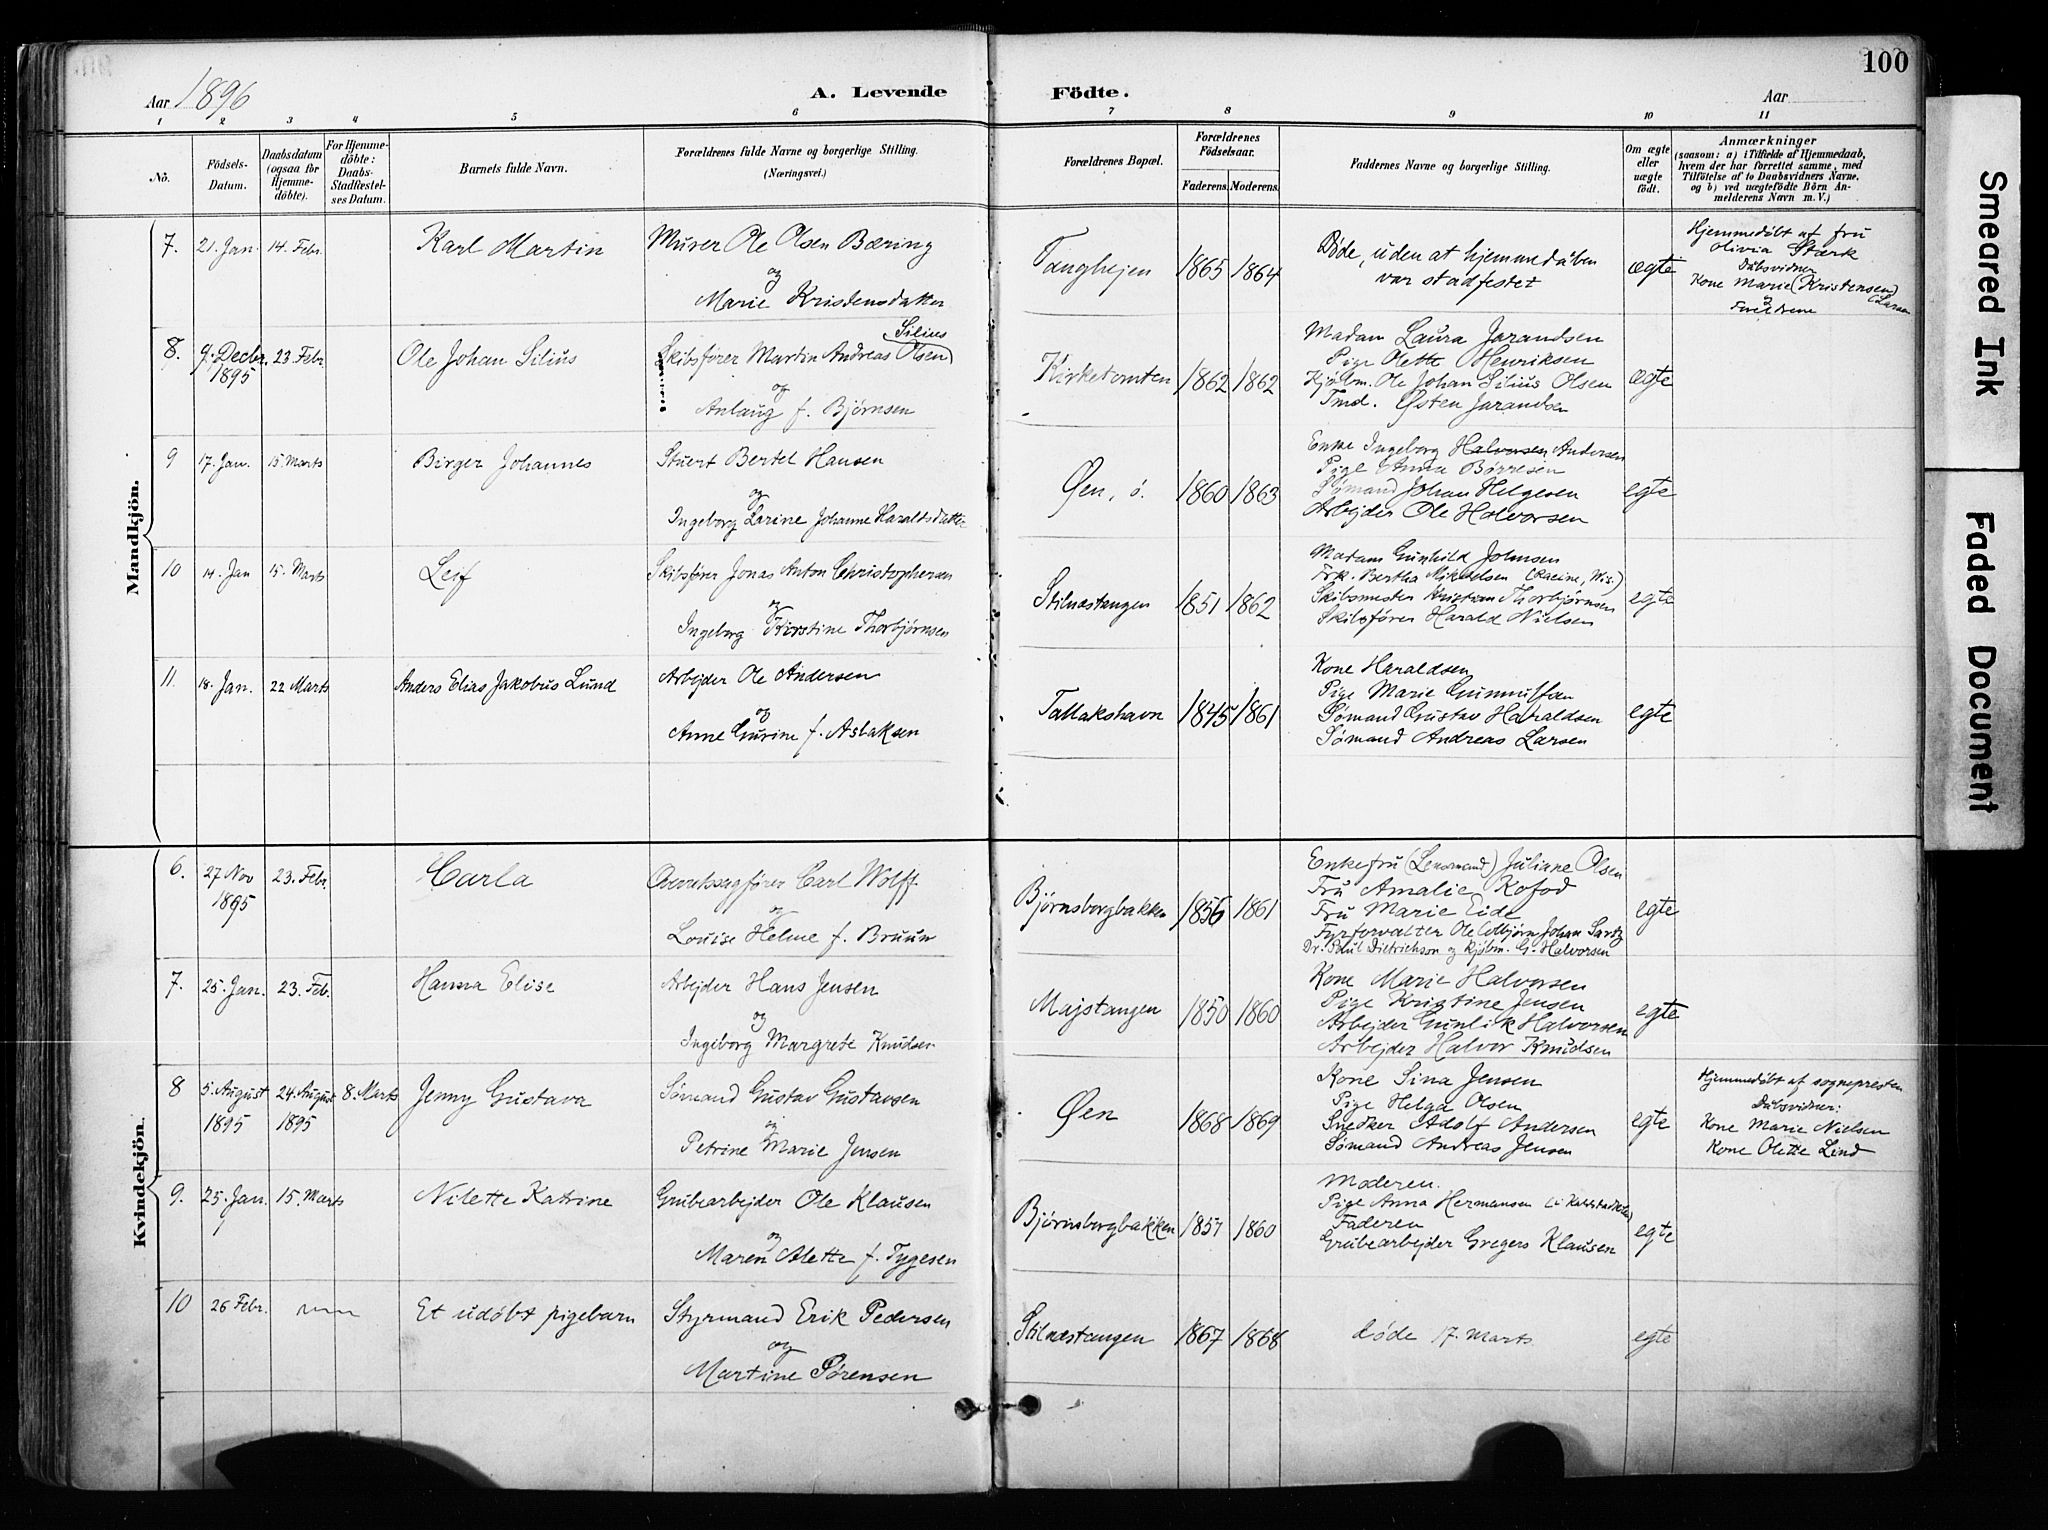 100
Aar 1896
A. Levende Födte.
Aar
1 2 3 4 5 6 7 8 9 10 11
No.
Födsels-Datum.
Daabsdatum (ogsaa for Hjemmedöbte).
For Hjemmedöbte: Daabs-Stadfæstelses Datum.
Barnets fulde Navn.
Forældrenes fulde Navne og borgerlige Stilling.
(Næringsvei.)
Forældrenes Bopæl.
Forældrenes Födselsaar.
Faderens. Moderens.
Faddernes Navne og borgerlige Stilling.
Om ægte eller uægte födt.
Anmærkninger
(saasom: a) i Tilfælde af Hjemmedaab,
hvem der har forrettet samme, med
Tilföielse af to Daabsvidners Navne,
og b) ved uægtefödte Börn An-
melderens Navn m. V.)
Mandkjön.
7. 21. Jan. 14. Febr. Karl Martin
Murer Ole Olsen Bæring
og
Marie Kristensdatter
Tanghejen 1865 1864
Døde, uden at hjemmedåben
var stadfestet
ægte
Hjemmedøbt af fru
Olivia Stærk
Dåbsvidner
Kone Marie (Kristensen)
Larsen
og
Foreldrene
8. 9. Decbr. 1895 23. Febr. Ole Johan Silius
Silius
Skibsfører Martin Andreas Olsen
og
Anlaug f. Bjørnsen
Kirketomten 1862 1862
Madam Laura Jarandsen
Pige Olette Henriksen
Kjøbm. Ole Johan Silius Olsen
Tmd. Østen Jarandsen
ægte
9 17. Jan. 15. Marts Birger Johannes
Stuert Bertel Hansen
og
Ingeborg Larine Johanne Haraldsdatter
Øen, ö. 1860 1863
Enke Ingeborg Halvorsen Andersen
Pige Anna Börresen
Sömand Johan Helgesen
Arbejder Ole Halvorsen
egte
10 14. Jan 15. Marts Leif
Skibsfører Jonas Anton Christophersen
og
Ingeborg Kirstine Thorbjørnsen
Stilnæstangen 1851 1862
Madam Gunhild Johnsen
Frk. Bertha Mikkelsen (Racine, Wis.)
Skibsmester Kristian Thorbjørnsen
Skibsfører Harald Nielsen
egte
11. 18. Jan. 22 Marts Anders Elias Jakobus Lund
Arbejder Ole Andersen
og
Anne Gurine f. Aslaksen
Tallakshavn 1845 1861
Kone Haraldsen
Pige Marie
Sømand Gustav Haraldsen
Sømand Andreas Larsen
egte
Kvindekjön.
6. 27 Nov 1895 23. Febr. Carla
Overretssagfører Carl Wolff
og
Louise Helene f. Bruun
Bjørnsborgbakken 1856 1861
Enkefru (Lensmand) Juliane Olsen
Fru Amalie Kofod
Fru Marie Eide
Fyrforvalter Ole Johan Sartz
Dr. Paul Dietrichson og Kjøbm. G. Halvorsen
egte
7. 25. Jan. 23. Feb. Hanna Elise
Arbejder Hans Jensen
og
Ingeborg Margrete Knudsen
Majstangen 1850 1860
Kone Marie Halvorsen
Pige Kristine Jensen
Arbejder Gunlik Halvorsen
Arbejder Halvor Knudsen
egte
8 5. August 1895 24. August 1895 8. Marts Jenny Gustava
Sømand Gustav Gustavsen
og
Petrine Marie Jensen
Øen 1868 1869
Kone Sina Jensen
Pige Helga Olsen
Snedker Adolf Andersen
Sømand Andreas Jensen
egte
Hjemmedøbt af sognepresten
Dåbsvidner:
Kone Marie Nielsen
Kone Olette Lind
9. 25. Jan. 15. Marts Nilette Katrine
Grubearbejder Ole Klausen
og
Maren Alette f. Tygesen
Bjørnsborgbakken 1857 1860
Moderen.
Pige Anna Hermansen
Faderen
Grubearbejder Gregers Klausen
egte
10 26 Febr. Et udøbt pigebarn
Styrmand Erik Pedersen
og
Martine Sørensen
Stilnæstangen 1867 1868
Døde 17. Marts
egte
Smeared Ink
Faded Document